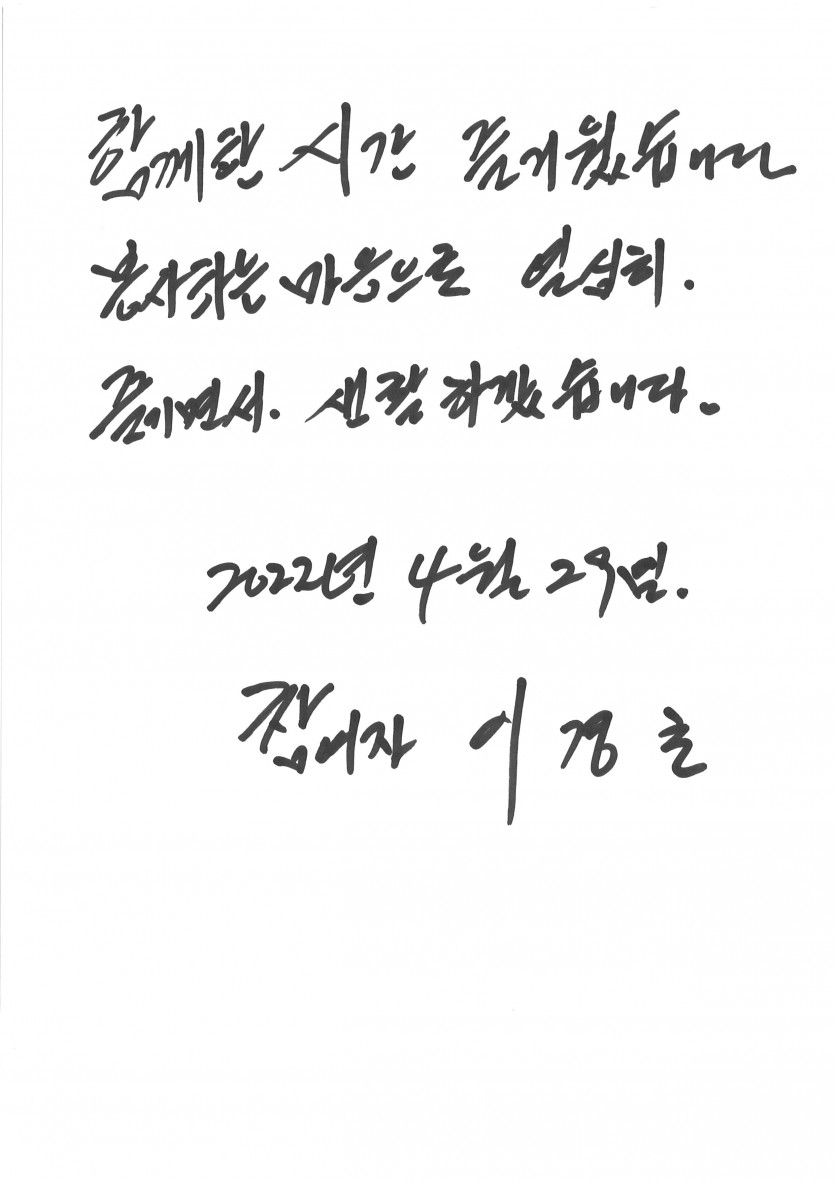 함께한 시간 즐거웠습니다
봉사하는 마음으로 열심히.
즐기면서. 생활 하겠습니다.
2022년 4월 29일.
참여자 이경호